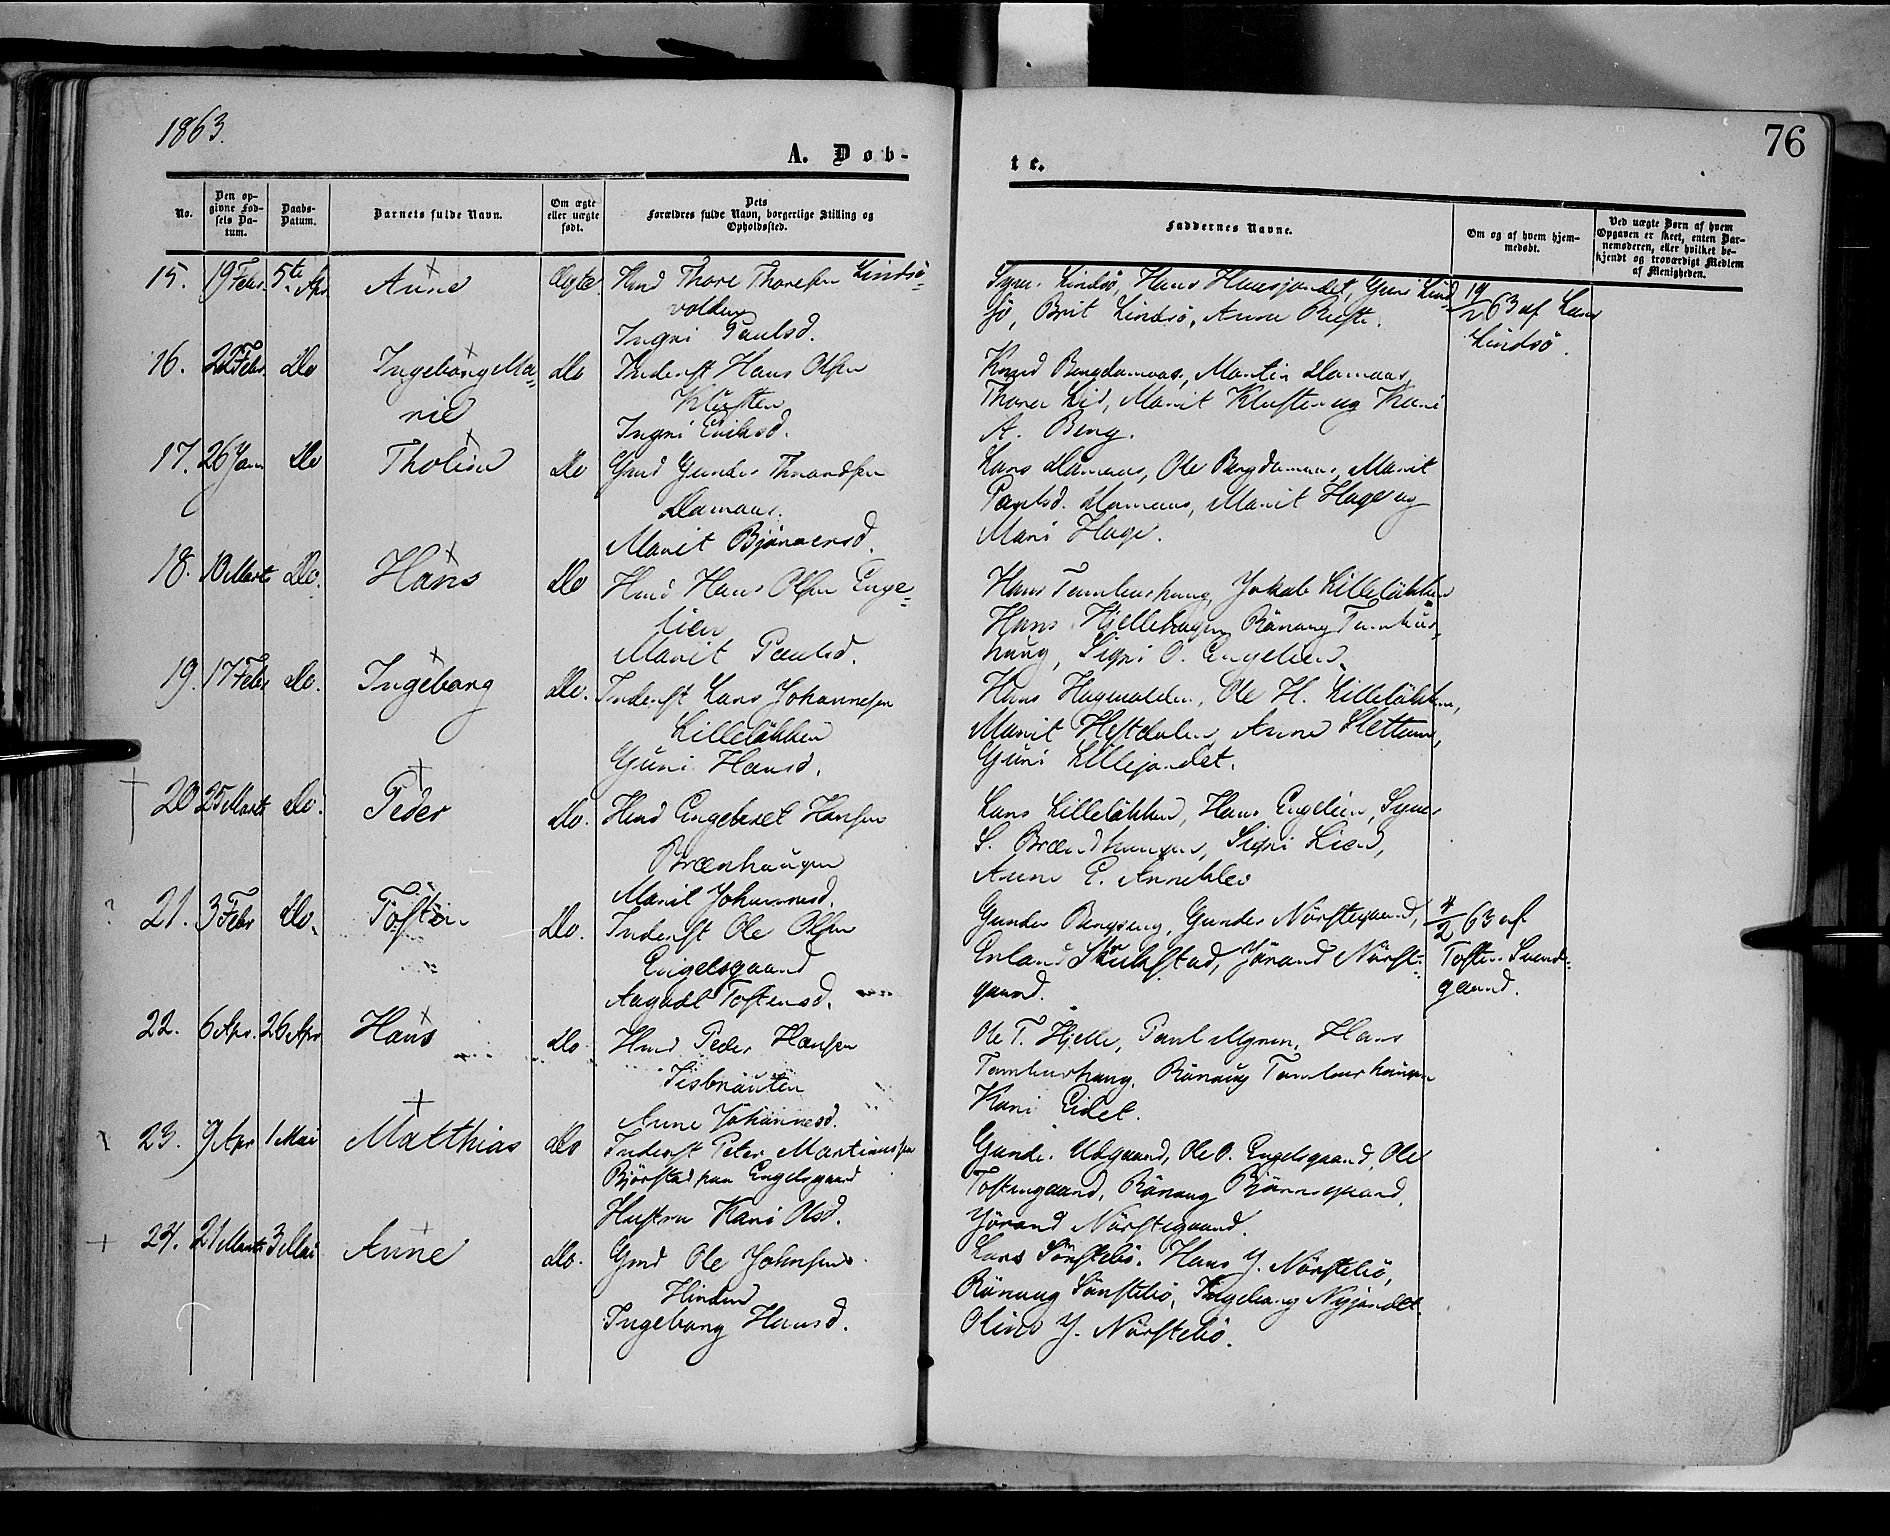 1863.
76
A. Døb-
te.
No.
Den op-
givne Fød-
sels Da-
tum.
Daabs-
Datum.
Barnets fulde Navn.
Om ægte
eller uægte
født.
Dets
Forældres fulde Navn, borgerlige Stilling og
Opholdssted.
Faddernes Navne.
Om og af hvem hjem-
medøbt.
Ved uægte Børn af hvem
Opgaven er skeet, enten Bar-
nemoderen, eller hvilket be-
kjendt og troværdigt Medlem
af Menigheden.
15. 19 Febr. 5te Apr. Anne Ægte. Hmd Thore Thoresen Lindsö-
volden
Ingri Paulsd.
Lindsö, Hans Hansjordet, Guri Lind
sö, Brit Lindsö, Anne
19/2 63 af Lars
Lindsö.
16. 22 Febr. Do Ingeborg Ma-
rie
Do Inderst Hans Olsen
Kluften
Ingri Eriksd.
Knud Bergdamaas, Martin Damaas,
Thore Lid, Marit Kluften og Kari
A. Berg.
17. 26 Jan Do Tholine Do Gmd Gunder Thoardsen
Damaas.
Marit Björnersd.
Lars Damaas, Ole Bergdamaas, Marit
Paulsd. Damaas, Marit Hage og
Mari Hage.
18. 10 Marts Do. Hans Do Hmd Hans Olsen Enge-
lien
Marit Paulsd.
Hans Tamburhaug, Jakob Lillelökken
Hans Hjellehagen, Rönaug Tambur-
haug, Sigri O. Engelien.
19. 17 Febr Do. Ingeborg Do. Inderst Lars Johannesen
Lillelökken
Guri Hansd.
Hans Hagevolden, Ole H. Lillelökken,
Marit Heftdalen, Anne Slettum,
Guri Lillejordet.
20 25 Marts Do. Peder Do. Hmd Engebret Hansen
Brænhaugen
Marit Johannesd.
Lars Lillelökken, Hans Engelien, Syver
S. Brændhaugen, Sigri Lien,
Anne E. Anneklev
21. 3 Febr Do. Tosten Do. Inderst Ole Olsen
Engelsgaard
Aagodt Tostensd.
Gunder Bergseng, Gunder Nörstegaard,
Erland Skulstad, Jörand Nörste-
gaard.
4/2 63 af
Tosten Svends-
gaard.
22. 6 Apr. 26 Apr Hans Do Hmd Peder Hansen
Fisbrauten
Anne Johannesd.
Ole T. Hjelle, Paul Myren, Hans
Tamburhaug, Rönaug Tamburhaugen
Kari Eidet.
23. 9 Apr 1 Mai Matthias Do Inderst Peter Martinussen
Björstad paa Engelsgaard
Hustru Kari Olsd.
Gunder Udgaard, Ole O. Engelsgaard, Ole
Tostengaard, Rönaug Björnsgaard,
Jörand Nörstegaard.
24. 21 Marts 3 Mai Anne Do. Gmd Ole Johnsen
Hinden
Ingeborg Hansd.
Lars Sörstebö. Hans J. Nörstebö,
Rönaug Sörstebö, Ingeborg Nyjordet
Oline J. Nörstebö.